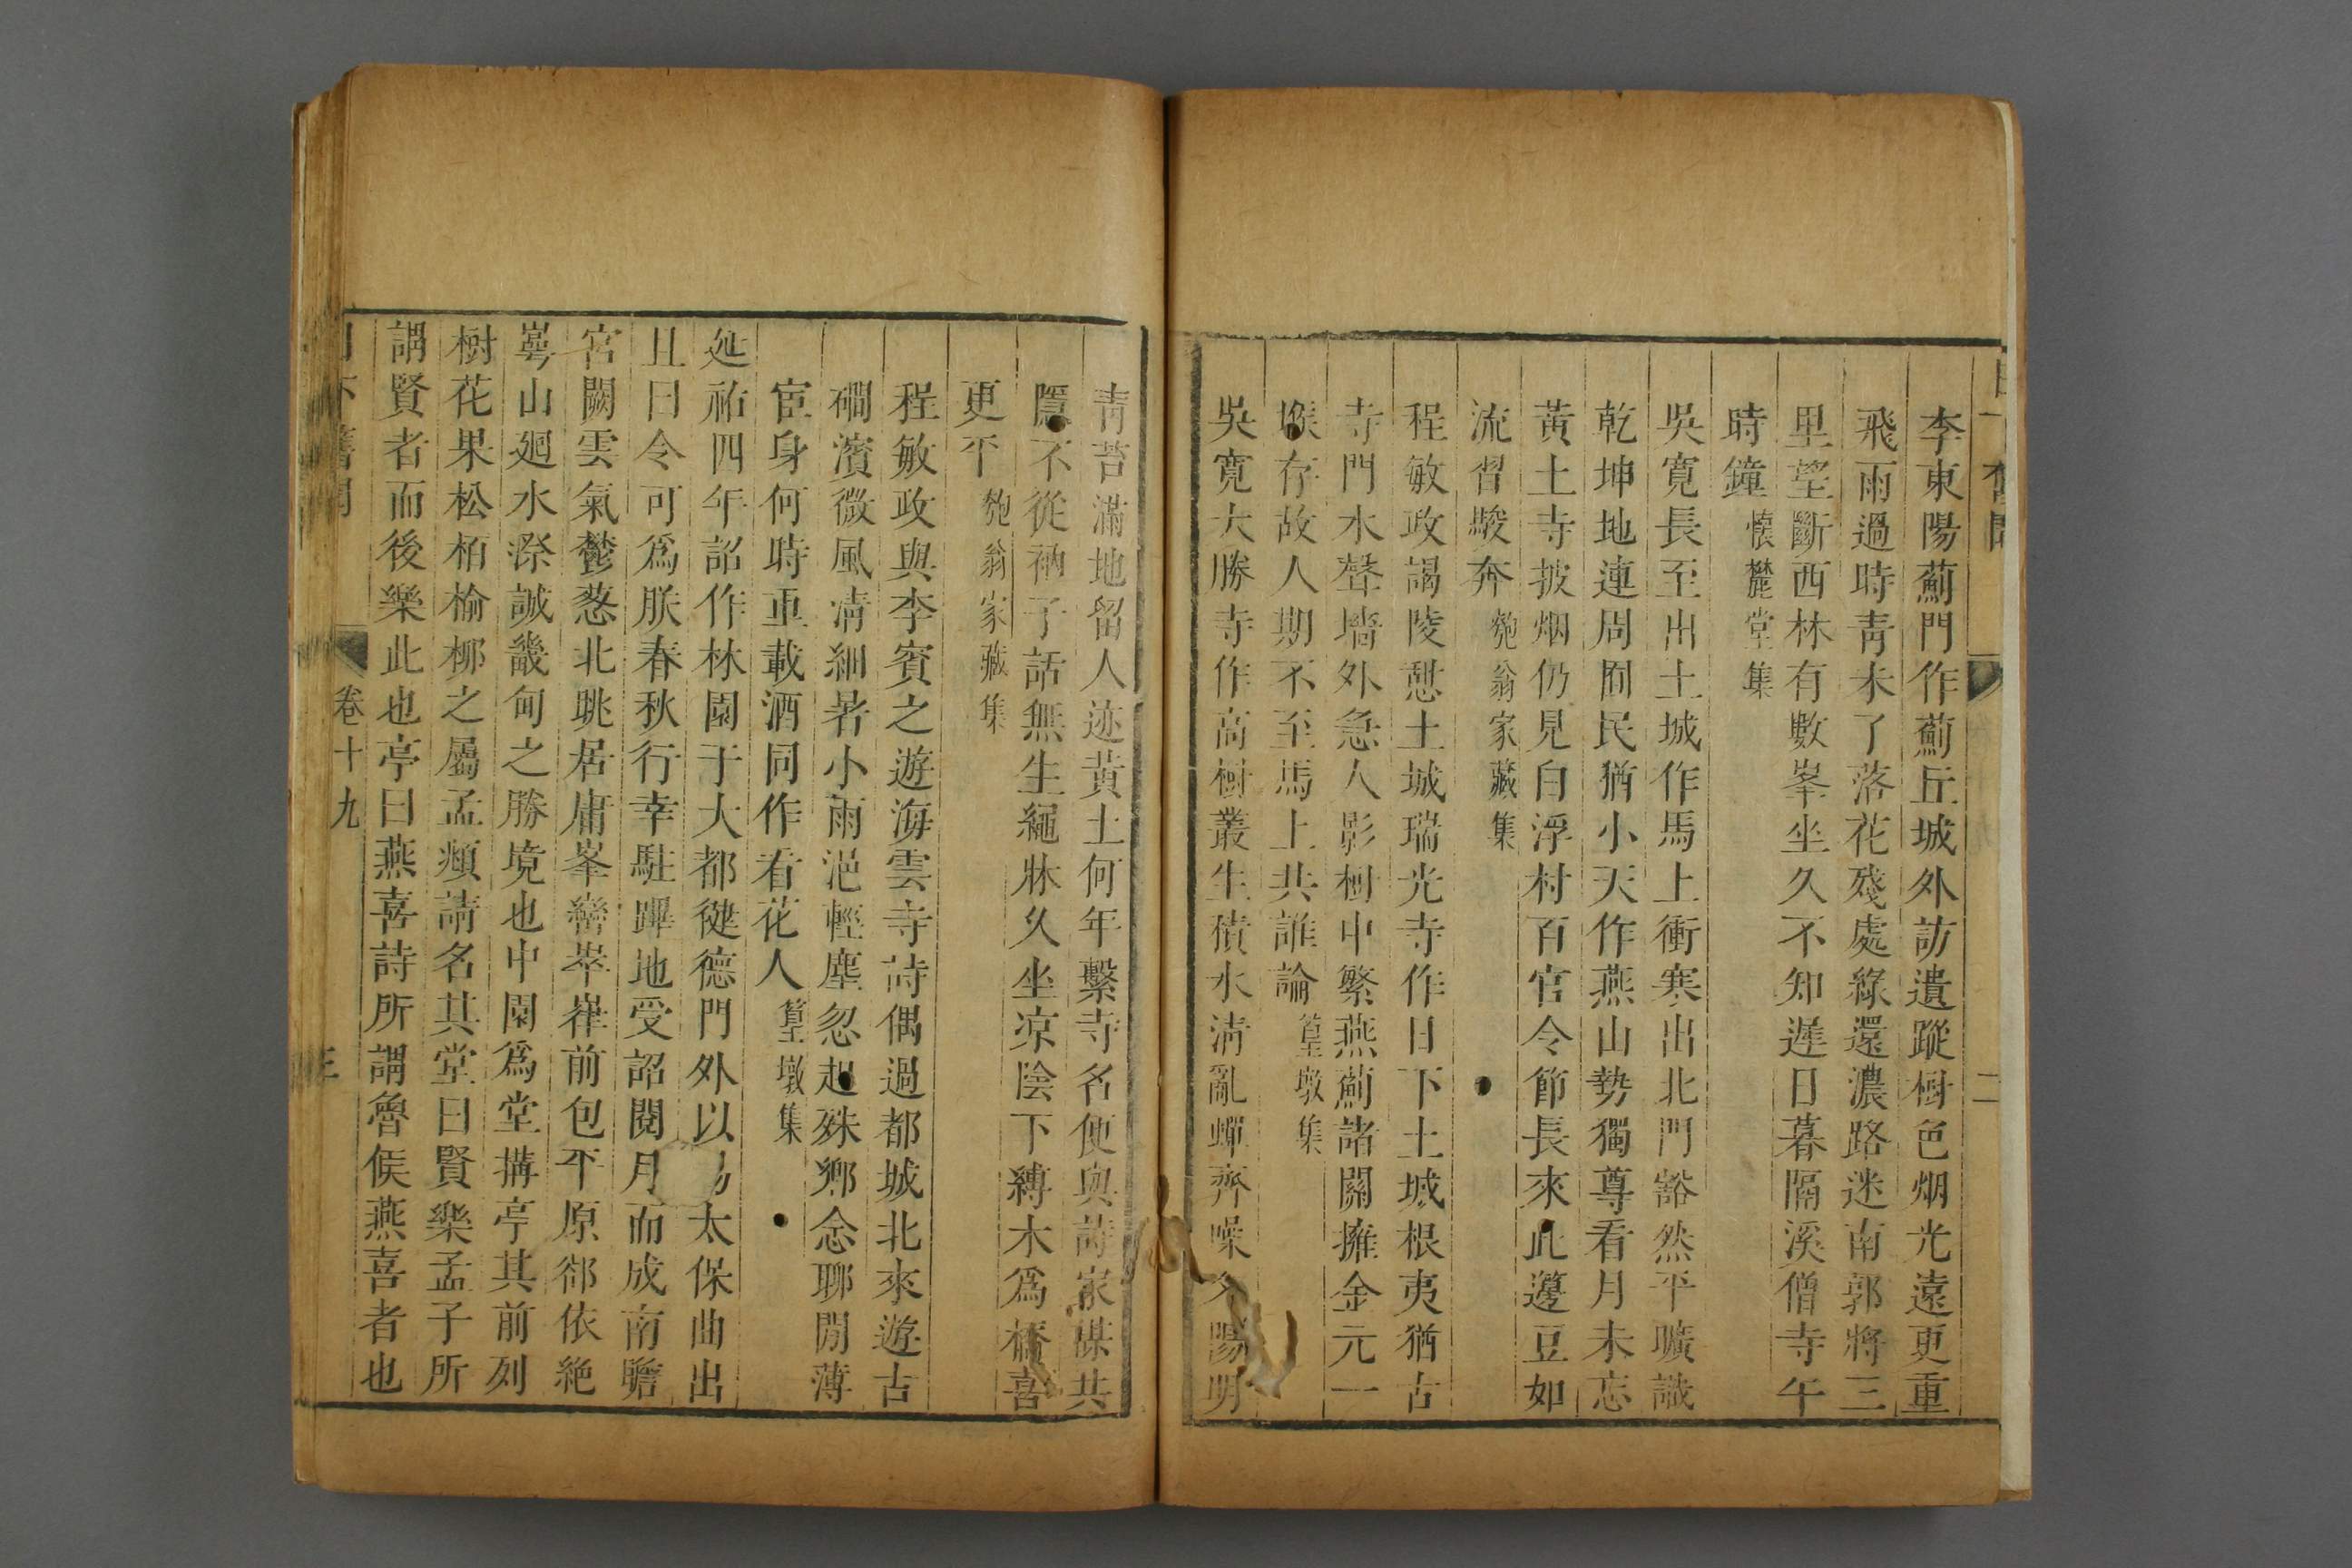 李東陽薊門作薊丘城外訪遺蹤樹色烟光遠更重
飛雨過時青未了落花殘處綠還濃路迷南郭將三
里望斷西林有數峯坐久不知遲日暮隔溪僧寺午
時鐘懷麓堂集
吳寬長至出土城作馬上衝寒出北門豁然平曠識
乾坤地連周囿民猶小天作燕山勢獨尊看月未忘
黃土寺披烟仍見白浮村百官令節長來此邊豆如
流習駿奔匏翁家藏集
程敏政謁陵憩土城瑞光寺作日下土城根夷猶古
寺門水聲墻外急人影樹中繁燕薊諸關擁金元一
堠存故人期不至馬上共誰論篁墩集
吳寬大勝寺作高樹叢生積水淸亂蟬齊噪夕陽明
青苔滿地留人迹黃土何年繫寺名便與詩家謀共
隱不從衲子話無生繩牀久坐凉陰下縛木爲橋喜
更平匏翁家藏集
程敏政與李賓之遊海雲寺詩偶過都城北來遊古
磵濱微風淸細暑小雨浥輕塵忽起殊鄉念聊閒薄
宦身何時重載酒同作看花人篁墩集
延祐四年詔作林園于大都健德門外以太保曲出
且曰令可爲朕春秋行幸駐蹕地受詔閱月而成南瞻
宮闕雲氣鬱葱北眺居庸峯巒崒嵂前包平原郤依絶
崿山廻水潀誠畿甸之勝境也中園爲堂搆亭其前列
樹花果松栢榆桺之屬孟頫請名其堂曰賢樂孟子所
謂賢者而後樂此也亭曰燕喜詩所謂魯侯燕喜者也
日下舊聞 卷十九 三